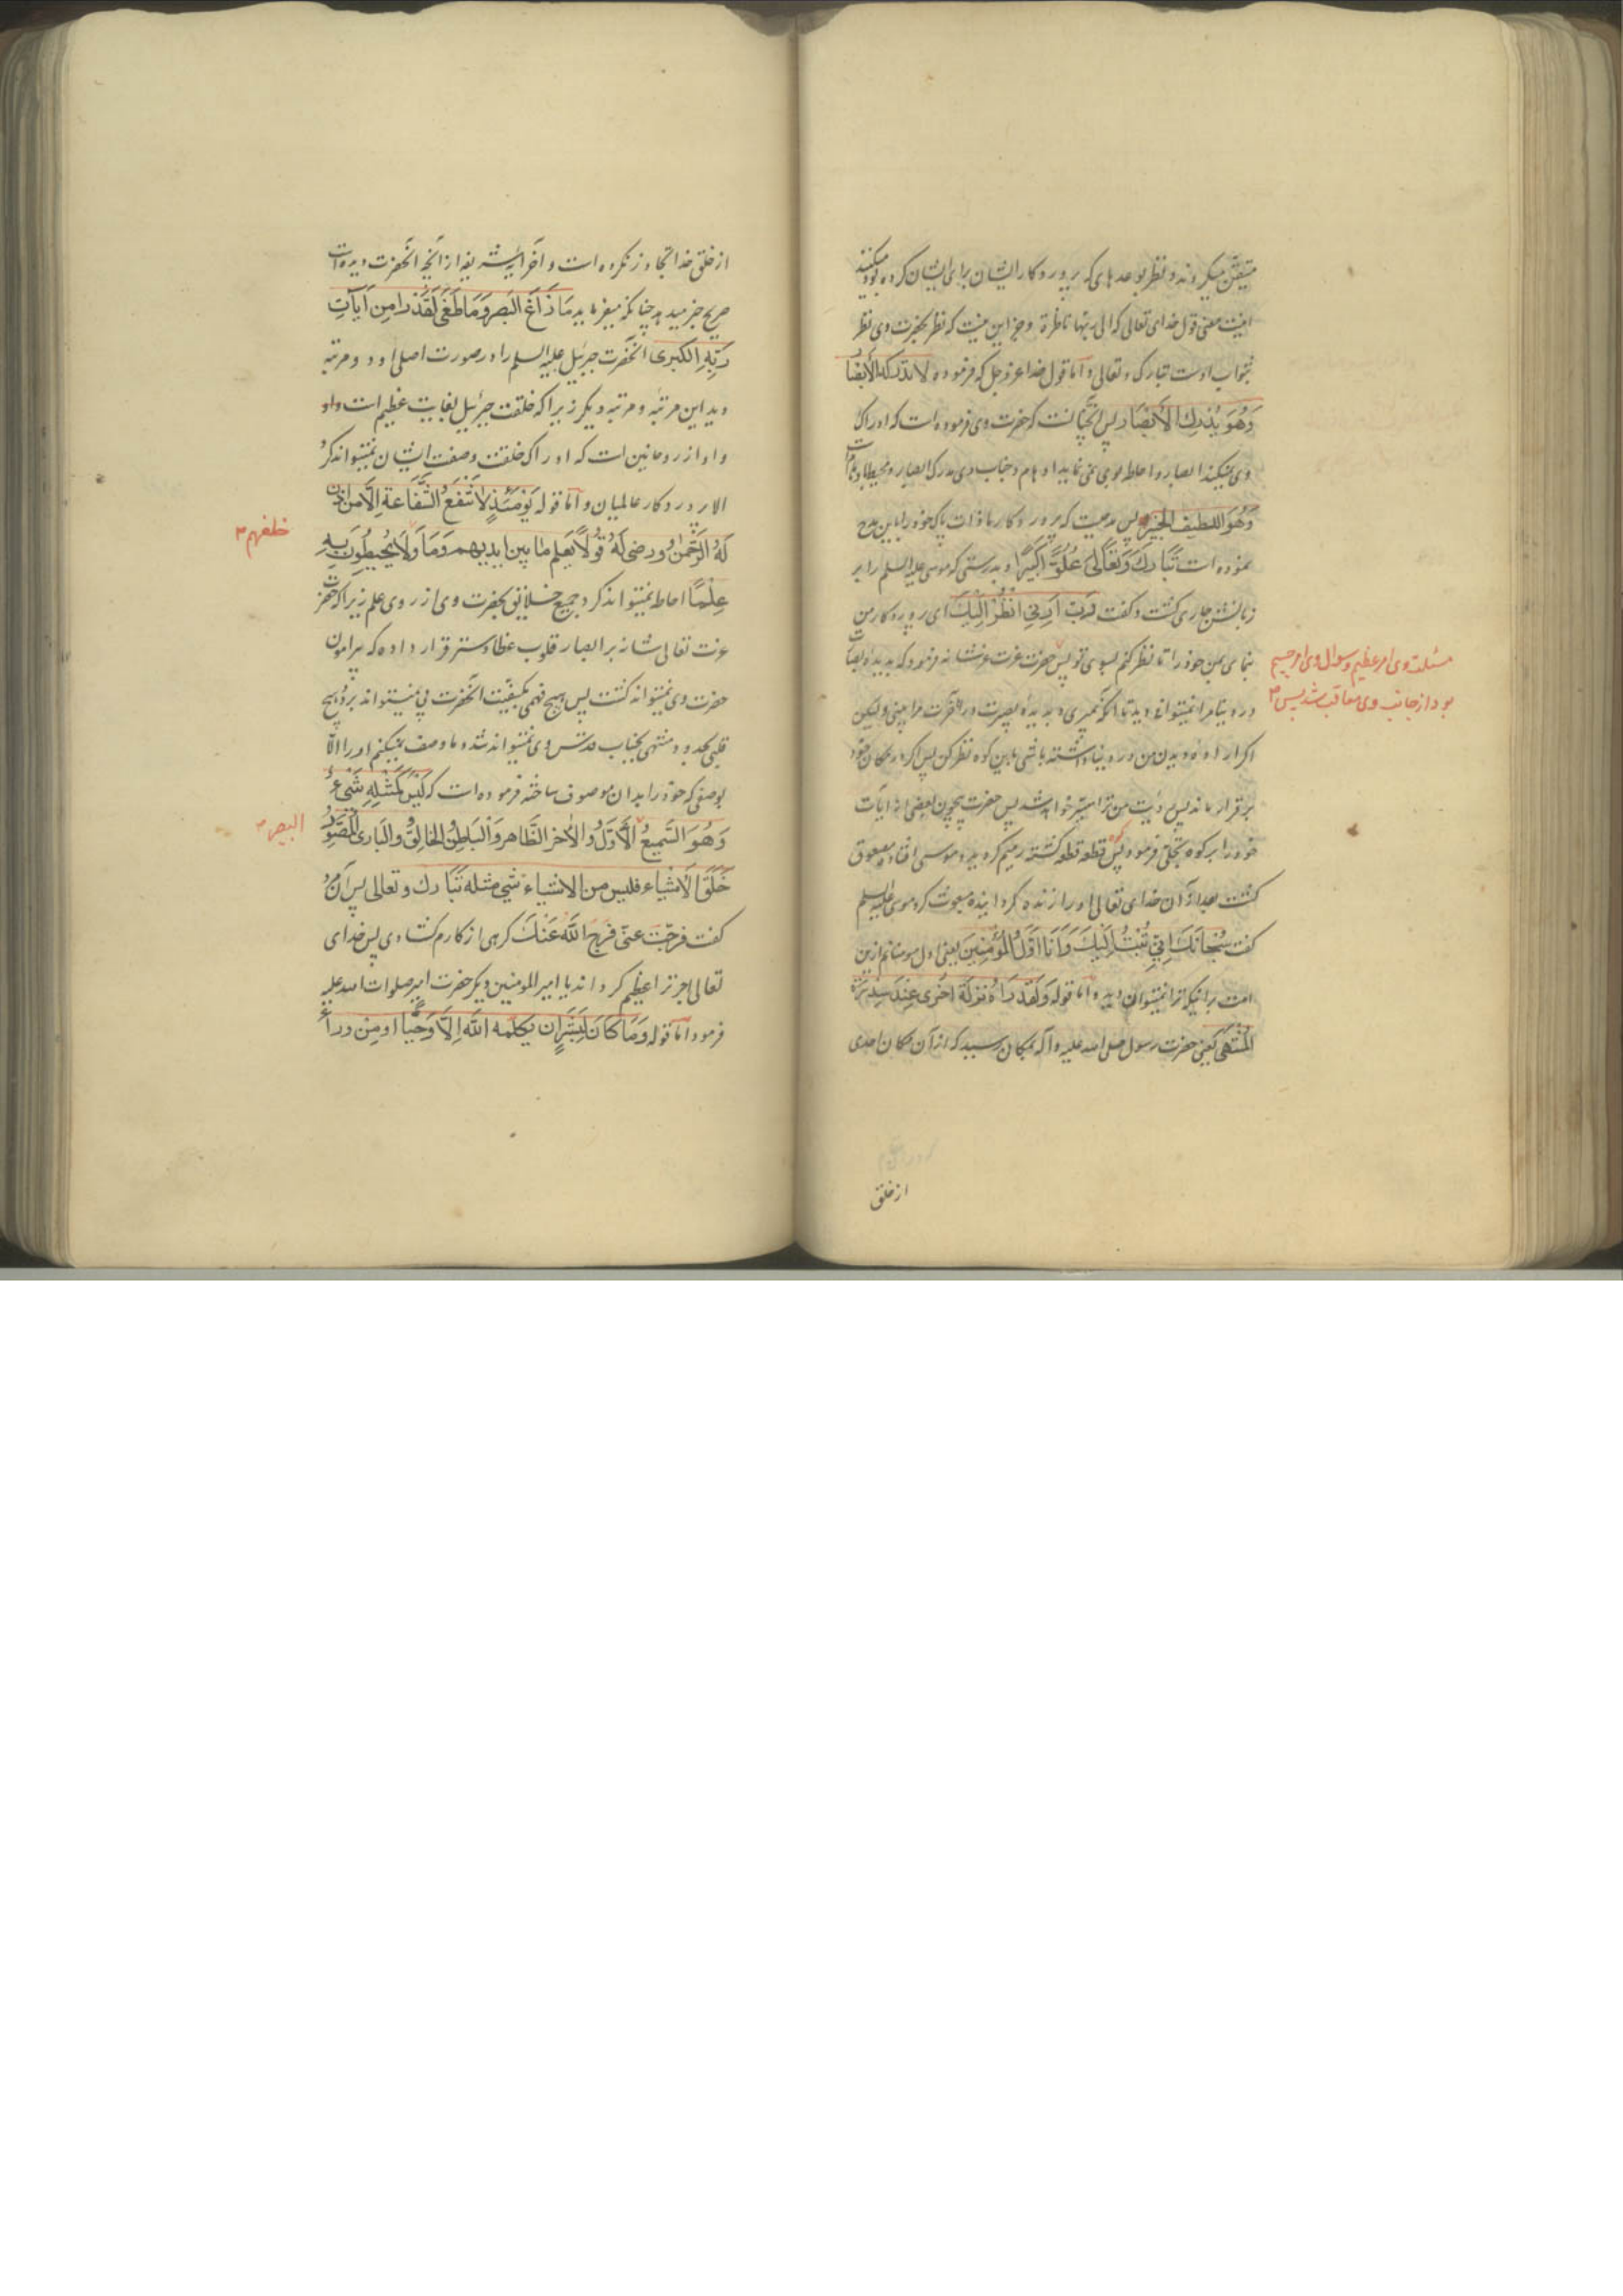 متیقّن میکردند و نظر بوعدهای که پروردکار ایشان برای ایشان کرده بود میکنند
اینست معنی قول خدای تعالی که الی ربها ناظرة و جز این نیست که نظر بحضرت وی نظر
بثواب اوست تبارک و تعالی و اما قول خدا عز و جل که فرموده لا تدرکه الأبصار
وَهُوَ یُدْرِكُ الأَبْصَارَ پس انچنانست که حضرت وی فرموده است که ادراک
وی نمیکند ابصار و احاطه بوی نمی نماید اوهام و جناب وی مدرک ابصار و محیط باوهام است
وَهُوَ اللطیف الخبیر پس مدحیست که پروردکار ما ذات پاک خود را باین مدح
نموده است تَبَارَكَ وَتَعَالَىٰ عُلُوًّا کَبِیرًا و بدرستی که موسی علیه السلم را بر
زبانش جاری کشت و کفت رَبِّ أَرِنِي أَنْظُرْ إِلَيْكَ ای پروردکار من
بنمای بمن خود را تا نظر کنم بسوی تو پس حضرت عزت عز شانه فرمود که بدیدهٔ بصارت
در دنیا مرا نمیتوانی دید تا آنکه بمیری و بدیدهٔ بصیرت در آخرت مرا بینی ولیکن
اکر اراده دیدن من در دنیا داشته باشی باین کوه نظر کن پس اکر در مکان خود
برقرار ماند پس رؤیت من ترا میسّر خواهد شد پس حضرت بیچون بعضی از آیات
خود را بر کوه تجلی فرمود پس کوه قطعه قطعه کشته رمیم کردید و موسی افتاده مصعوق
کشت بعد از آن خدای تعالی او را زنده کردانیده مبعوث کرد موسی علیه السلم
کفت سُبْحَانَكَ إِنِّي تُبْتُ إِلَيْكَ وَأَنَا أَوَّلُ الْمُؤْمِنِینَ یعنی اول مومنانم ازین
امت بر اینکه ترا نمیتوان دید و اما قوله وَلَقَدْ رَآهُ نَزْلَةً أُخْرَىٰ عِنْدَ سِدْرَةِ
الْمُنْتَهَىٰ یعنی حضرت رسول صلی الله علیه و آله بمکان رسید که از آن مکان احدی
مسئلت وی امر عظیم و سوال وی امر جسیم
بود از جانب وی معاقب شد پس ۳
از خلق
از خلق خدا تجاوز نکرده است و آخر آیهٔ شریفه از آنچه آنحضرت دیده است
صریح خبر میدهد چنانکه میفرماید مَا زَاغَ الْبَصَرُ وَمَا طَغَىٰ لَقَدْ رَا مِنْ آیَاتِ
رَبِّهِ الْکُبْرَىٰ آنحضرت جبرئیل علیه السلم را در صورت اصلی او دو مرتبه
دید این مرتبه و مرتبه دیکر زیرا که خلقت جبرئیل بغایت عظیم است و او
و او از روحانین است که ادراک خلقت و صفت ایشان نمیتواند کرد
الا پروردکار عالمیان و اما قوله یَوْمَئِذٍ لَا تَنْفَعُ الشَّفَاعَةُ إِلَّا مَنْ أَذِنَ
لَهُ الرَّحْمَنُ و رضی لَهُ قَوْلًا یَعلم مَا بین ایدیهم وَمَا وَلَا یُحِیطُونَ بِهِ
خلفهم ۳
عِلْمًا احاطه نمیتواند کرد جمیع خلایق بحضرت وی از روی علم زیرا که حضرت
عزت تعالی شانه بر ابصار قلوب غطا و ستر قرار داده که پیرامون
حضرت وی نمیتواند کشت پس هیچ فهمی بکیفیّت آنحضرت پی نمیتواند برد و هیچ
قلبی بحدود منتهی بجناب قدسش وی نمیتواند شد و ما وصف نمیکنیم او را الّا
بوصفی که خود را بدان موصوف ساخته فرموده است که لَیْسَ کَمِثْلِهِ شَيْءٌ
وَهُوَ السَّمِیعُ الْأَوَّلُ وَالْآخر الظَّاهر وَالْبَاطِنُ الْخَالِقُ وَالْبَارِئُ الْمُصَوِّرُ
البصیر ۳
خَلَقَ الْأَشْیَاء فلیس من الاشیاء شیٔ مثله تَبَارَكَ وتعالی پس آن مرد
کفت فَرَّجْتَ عنّی فَرَّجَ اللَّهُ عَنْكَ کرهی از کارم کشادی پس خدای
تعالی اجر ترا عظیم کرداند یا امیر المومنین دیکر حضرت امیر صلوات الله علیه
فرمود و اما قوله وَمَا کَانَ لِبَشَرٍ ان یکلمه اللَّهُ إِلَّا وَحْیًا او مِنْ وراءِ